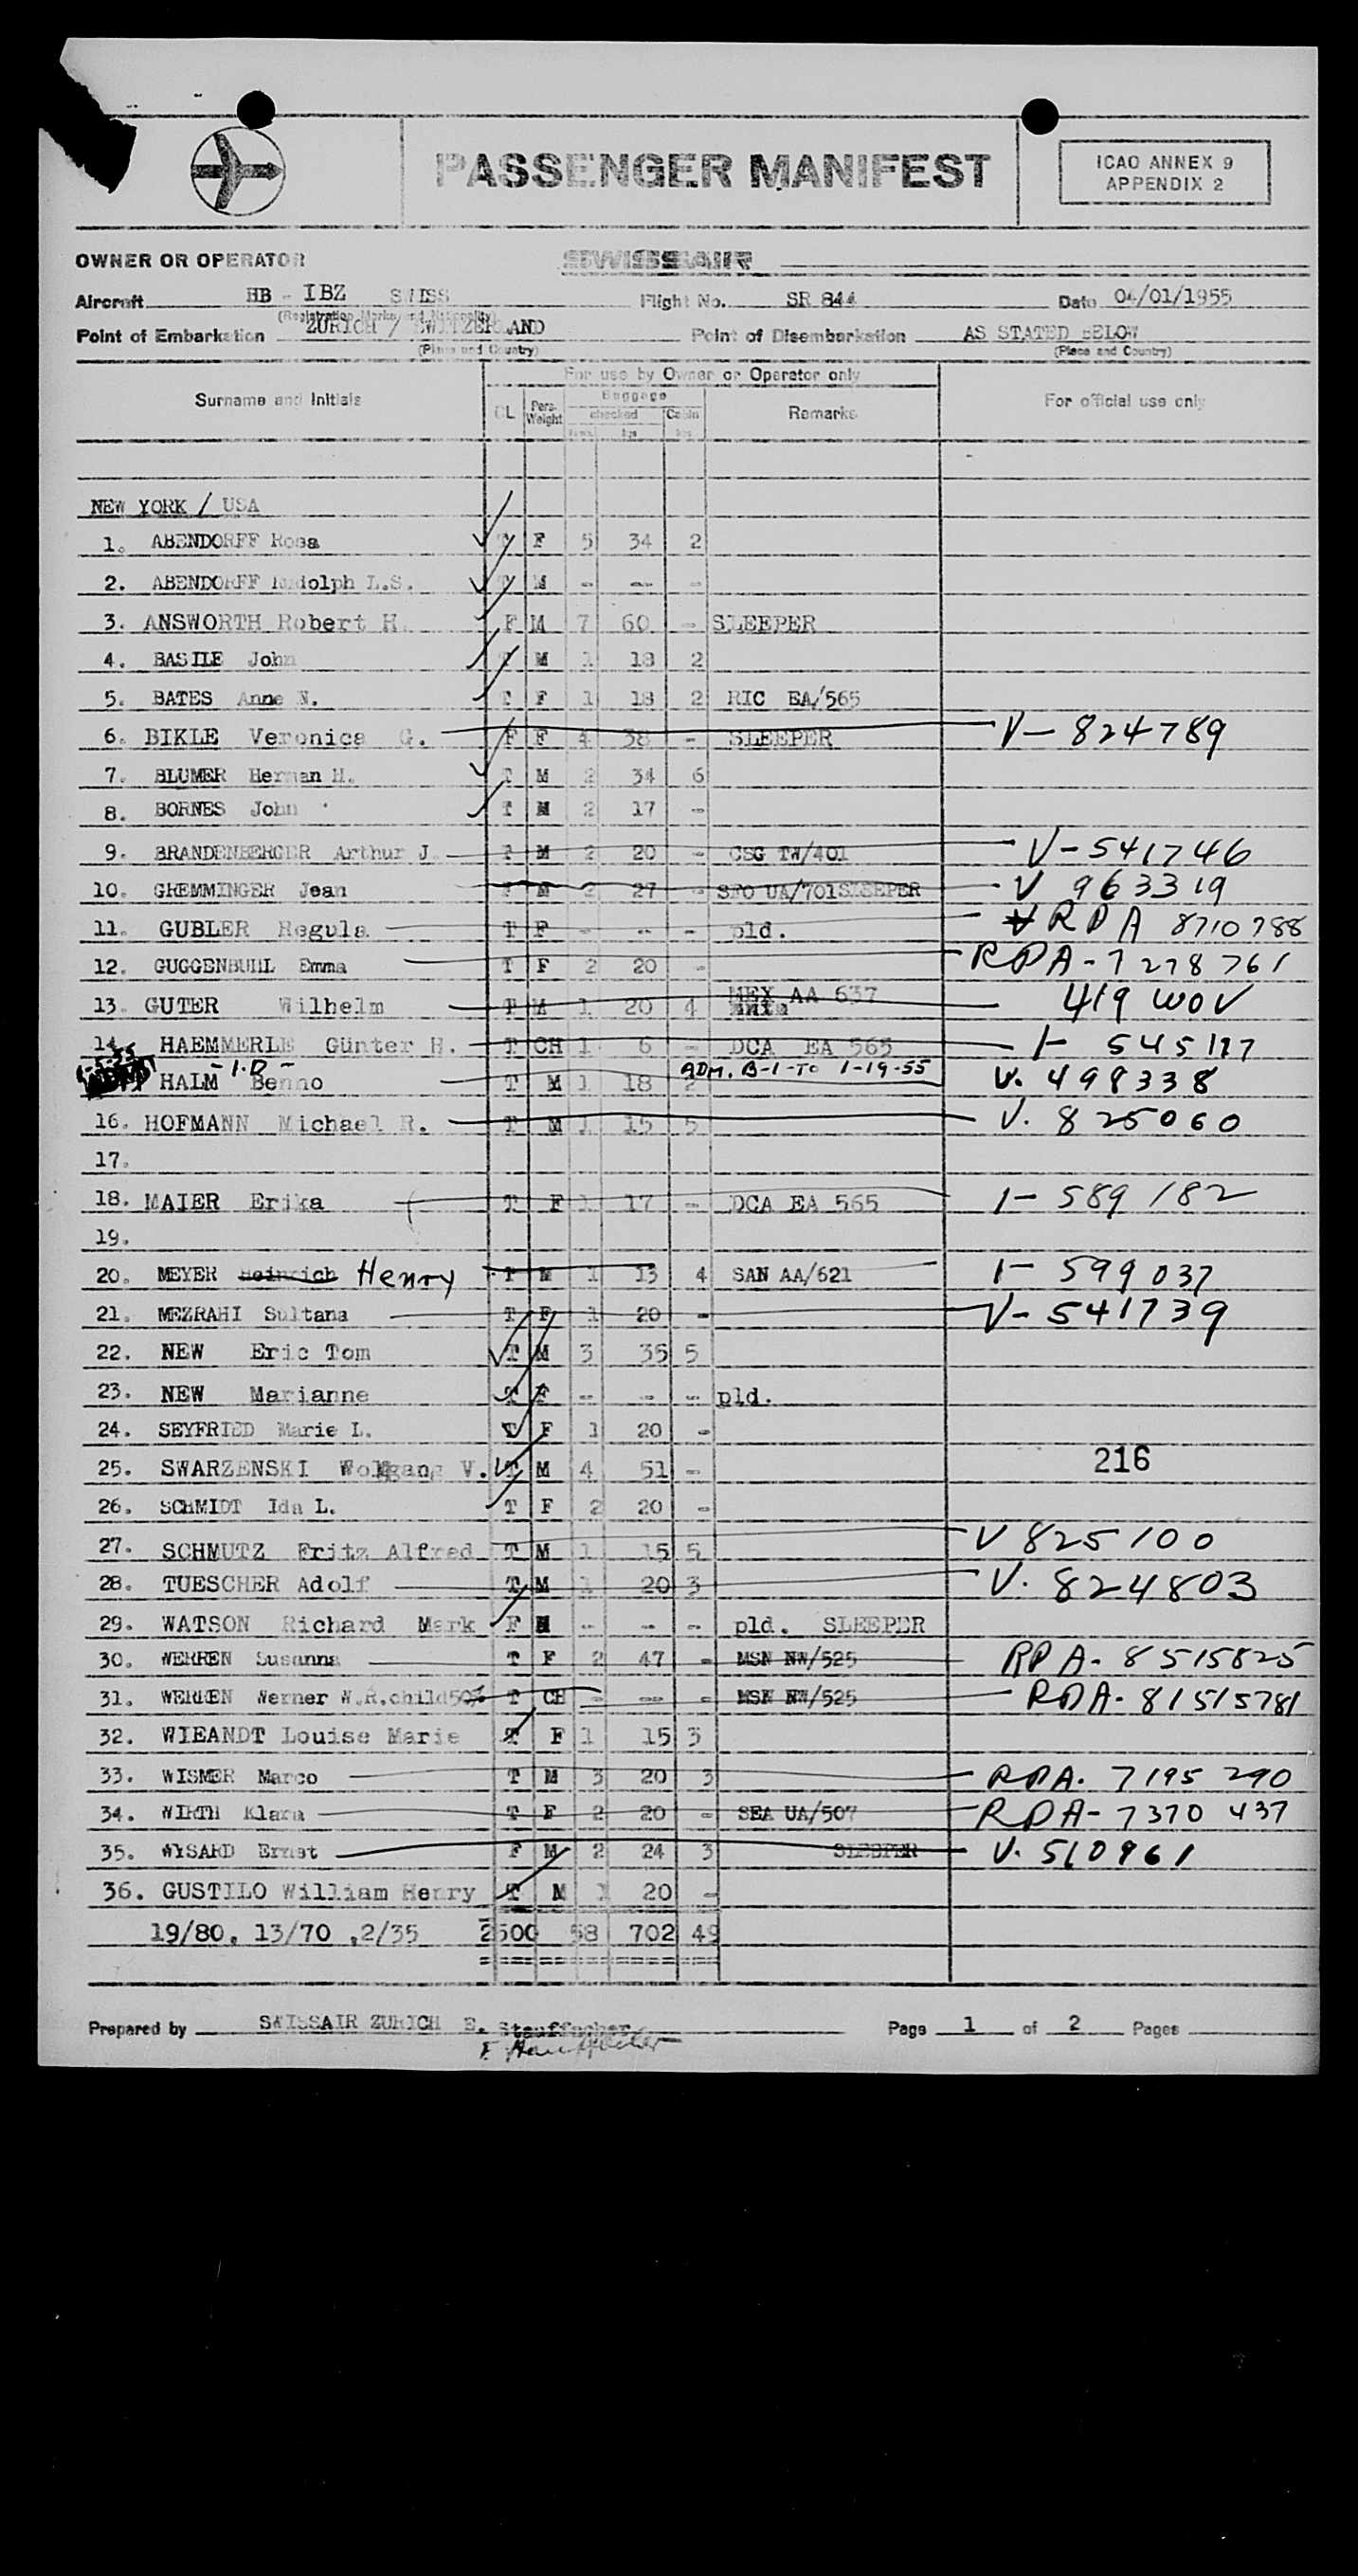 PASSENGER MANIFEST
ICAO ANNEX 9
APPENDIX 2
OWNER OR OPERATOR SWISSAIR
Aircraft HB - IBZ SWISS Flight No. SR 844 Date 04/01/1955
(Registration Marks and Nationality)
Point of Embarkation ZURICH / SWITZERLAND Point of Disembarkation AS STATED BELOW
(Place and Country) (Place and Country)
For use by Owner or Operator only
Surname and Initials CL Pers. Weight Baggage checked kgs Cabin kgs Remarks For official use only
NEW YORK / USA
1. ABENDORFF Rosa T F 5 34 2
2. ABENDORFF Rudolph L.S. T M - -- -
3. ANSWORTH Robert H. F M 7 60 - SLEEPER
4. BASILE John T M 1 18 2
5. BATES Anne N. T F 1 18 2 RIC EA/565
6. BIKLE Veronica G. F F 4 38 - SLEEPER V- 824789
7. BLUMER Herman H. T M 2 34 6
8. BORNES John T M 2 17 -
9. BRANDENBERGER Arthur J. T M 2 20 - CSG TW/401 V-541746
10. GREMMINGER Jean F M 2 27 - SFO UA/701 SLEEPER V 963319
11. GUBLER Regula T F - -- - pld. RPA 8710788
12. GUGGENBUHL Emma T F 2 20 - RPA-7278761
13. GUTER Wilhelm T M 1 20 4 MEX AA 637 419 WOV
14. HAEMMERLE Günter H. T CH 1 6 - DCA EA 565 I- 545117
1-5-55 - I.D - ADM. B-1-TO 1-19-55
HALM Benno T M 1 18 2 V. 498338
16. HOFMANN Michael R. T M 1 15 5 V. 825060
17.
18. MAIER Erika T F 1 17 - DCA EA 565 I- 589182
19.
20. MEYER Heinrich Henry T M 1 13 4 SAN AA/621 I- 599037
21. MEZRAHI Sultana T F 1 20 - V-541739
22. NEW Eric Tom T M 3 35 5
23. NEW Marianne T F - -- - pld.
24. SEYFRIED Marie L. T F 1 20 -
25. SWARZENSKI Wolfgang V. T M 4 51 - 216
26. SCHMIDT Ida L. T F 2 20 -
27. SCHMUTZ Fritz Alfred T M 1 15 5 V 825100
28. TUESCHER Adolf T M 1 20 3 V. 824803
29. WATSON Richard Mark F M - -- - pld. SLEEPER
30. WERREN Susanna T F 2 47 - MSN NW/525 RPA- 8515825
31. WERREN Werner W.R. child 50% T CH - -- - MSN NW/525 RPA- 81515781
32. WIEANDT Louise Marie T F 1 15 3
33. WISMER Marco T M 3 20 3 RPA. 7195290
34. WIRTH Klara T F 2 20 - SEA UA/507 RPA- 7370437
35. WYSARD Ernst F M 2 24 3 SLEEPER V. 510961
36. GUSTILO William Henry T M 1 20 -
19/80, 13/70 ,2/35 2500 58 702 49
Prepared by SWISSAIR ZURICH E. Stauffacher Page 1 of 2 Pages
E. Stauffacher